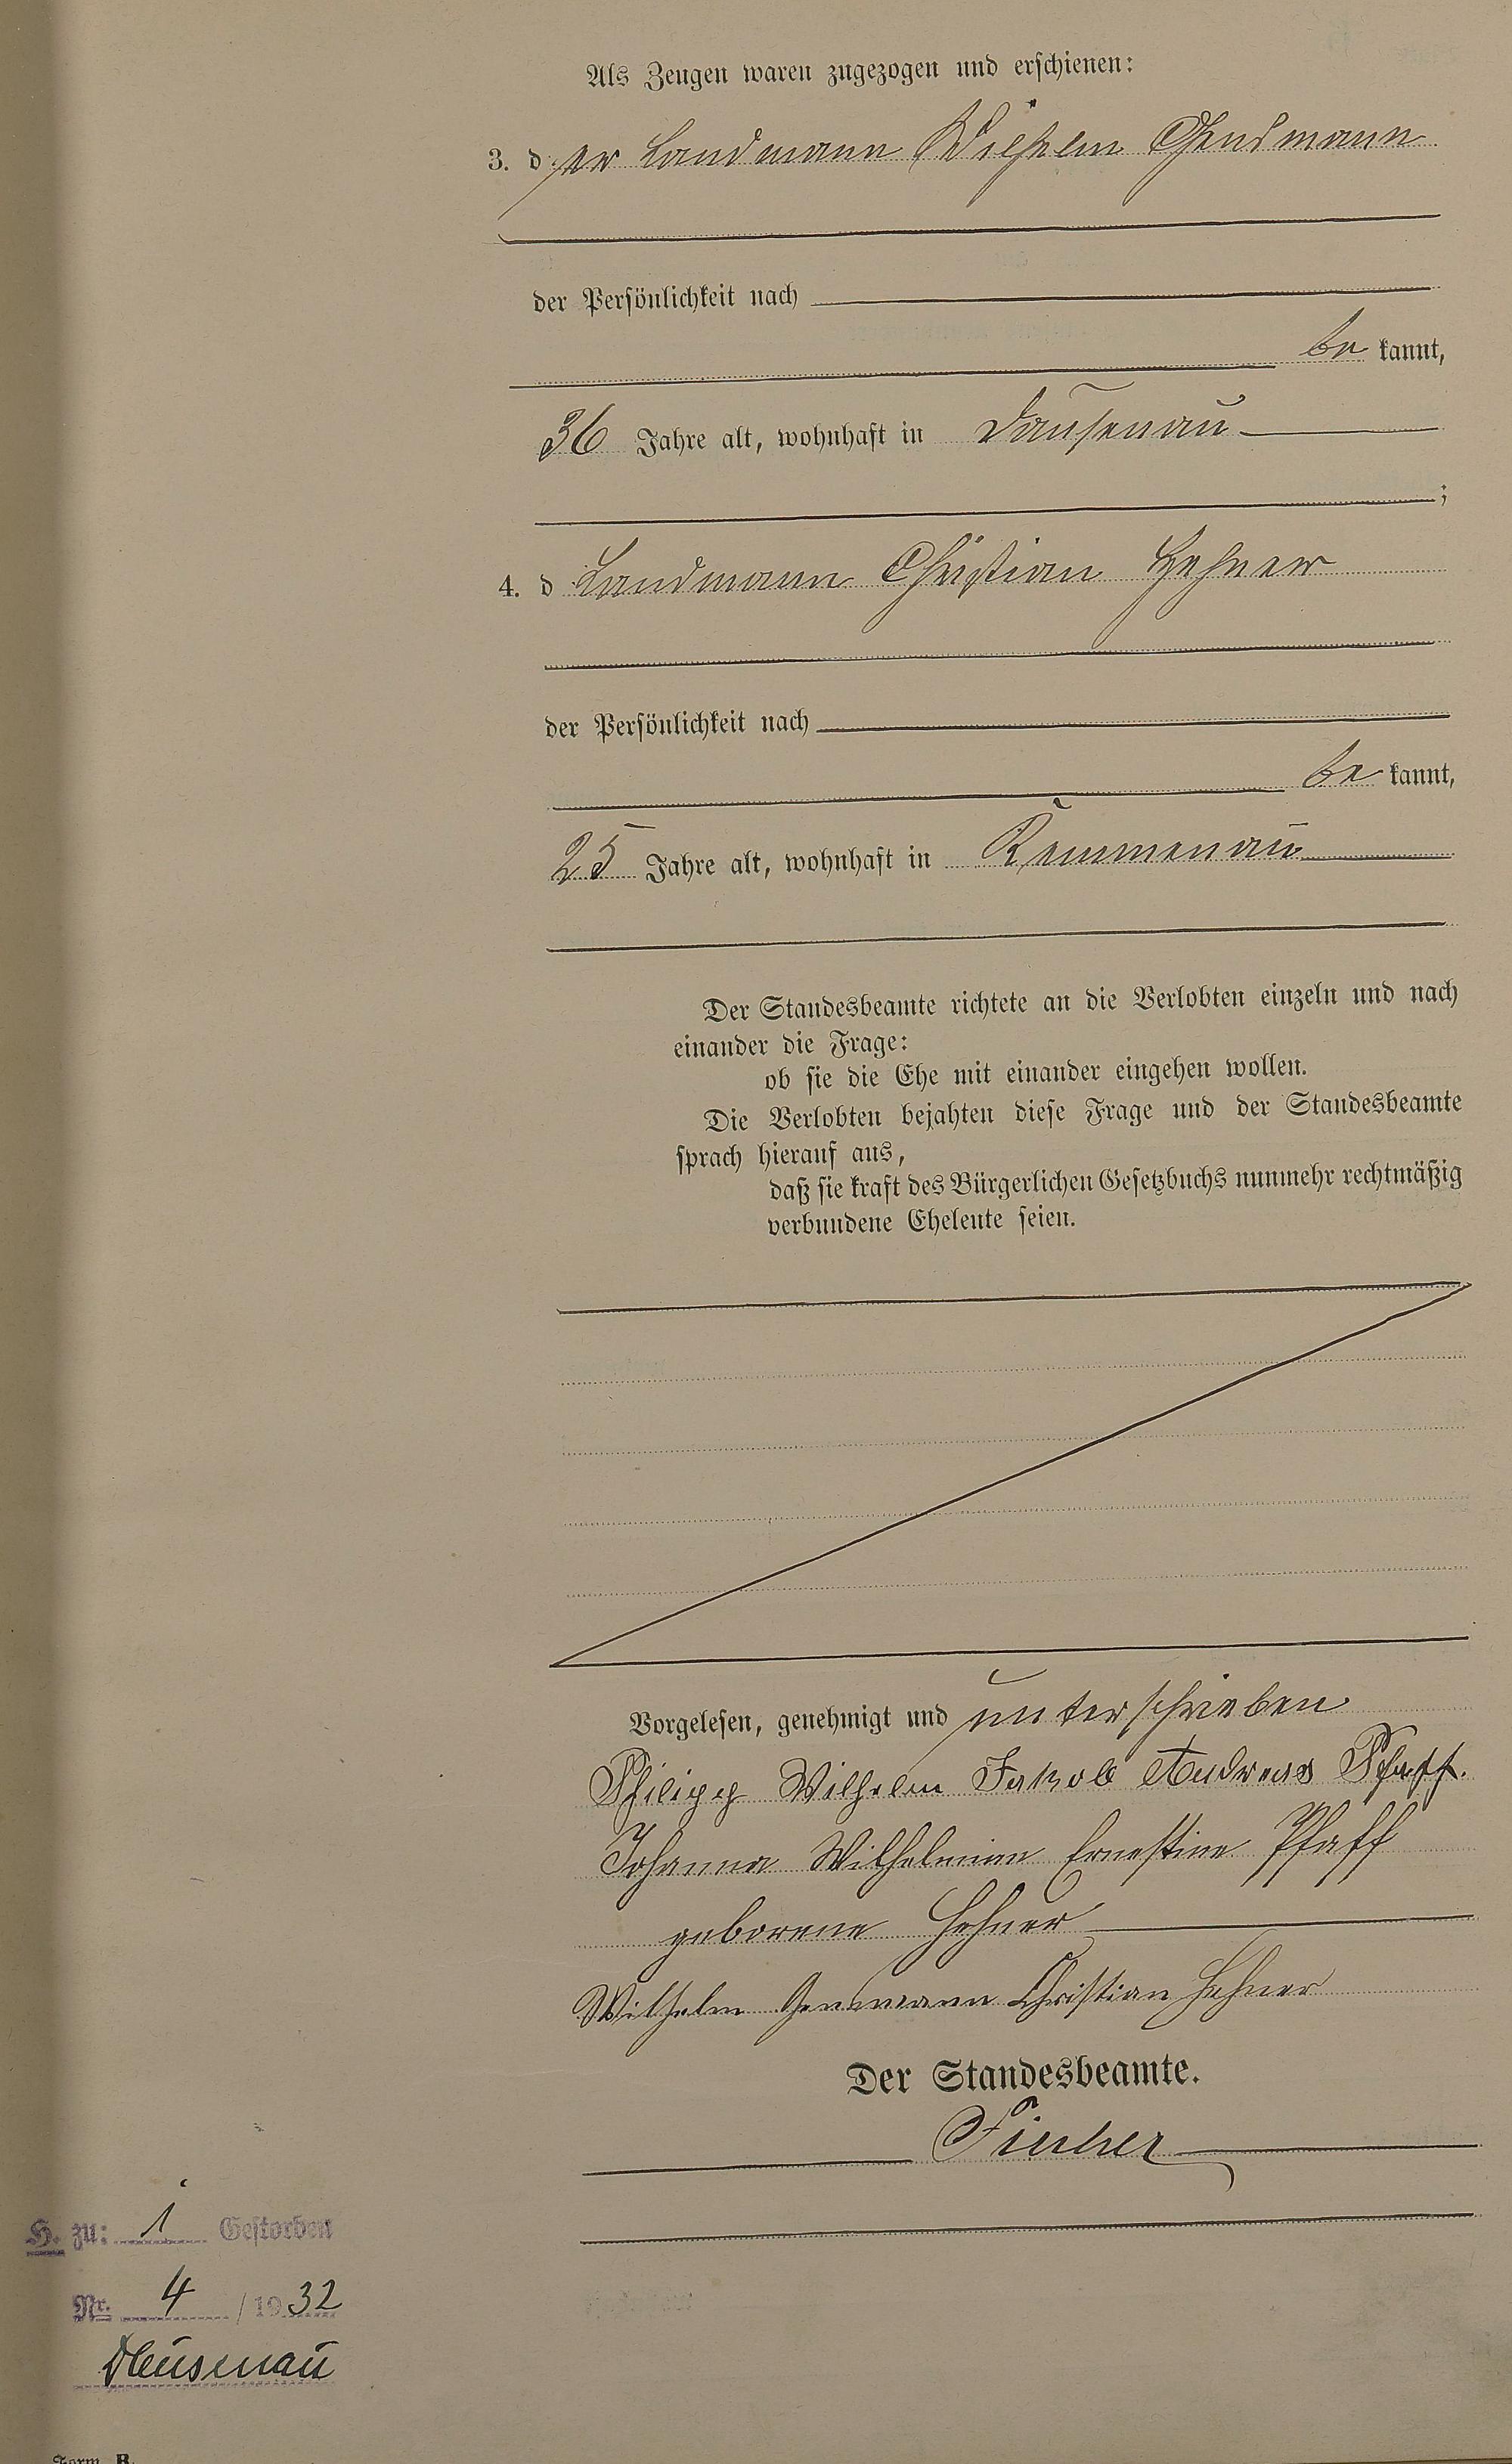 Als Zeugen waren zugezogen und erschienen:
3. der Landmann Wilhelm
der Persönlichkeit nach
be kannt,
36 Jahre alt, wohnhaft in Dausenau
;
4. d Landmann Christian Hehner
der Persönlichkeit nach
be kannt,
25 Jahre alt, wohnhaft in Kemmenau
Der Standesbeamte richtete an die Verlobten einzeln und nach
einander die Frage:
ob sie die Ehe mit einander eingehen wollen.
Die Verlobten bejahten diese Frage und der Standesbeamte
sprach hierauf aus,
daß sie kraft des Bürgerlichen Gesetzbuchs nunmehr rechtmäßig
verbundene Eheleute seien.
Vorgelesen, genehmigt und unterschrieben
Philipp Wilhelm Jakob Andreas Pfaff.
Johanna Wilhelmine Ernestine Pfaff
geborene Hehner
Wilhelm Christian Hehner
Der Standesbeamte.
H. zu: 1 Gestorben
Nr. 4 / 1932
Dausenau
Form. B.